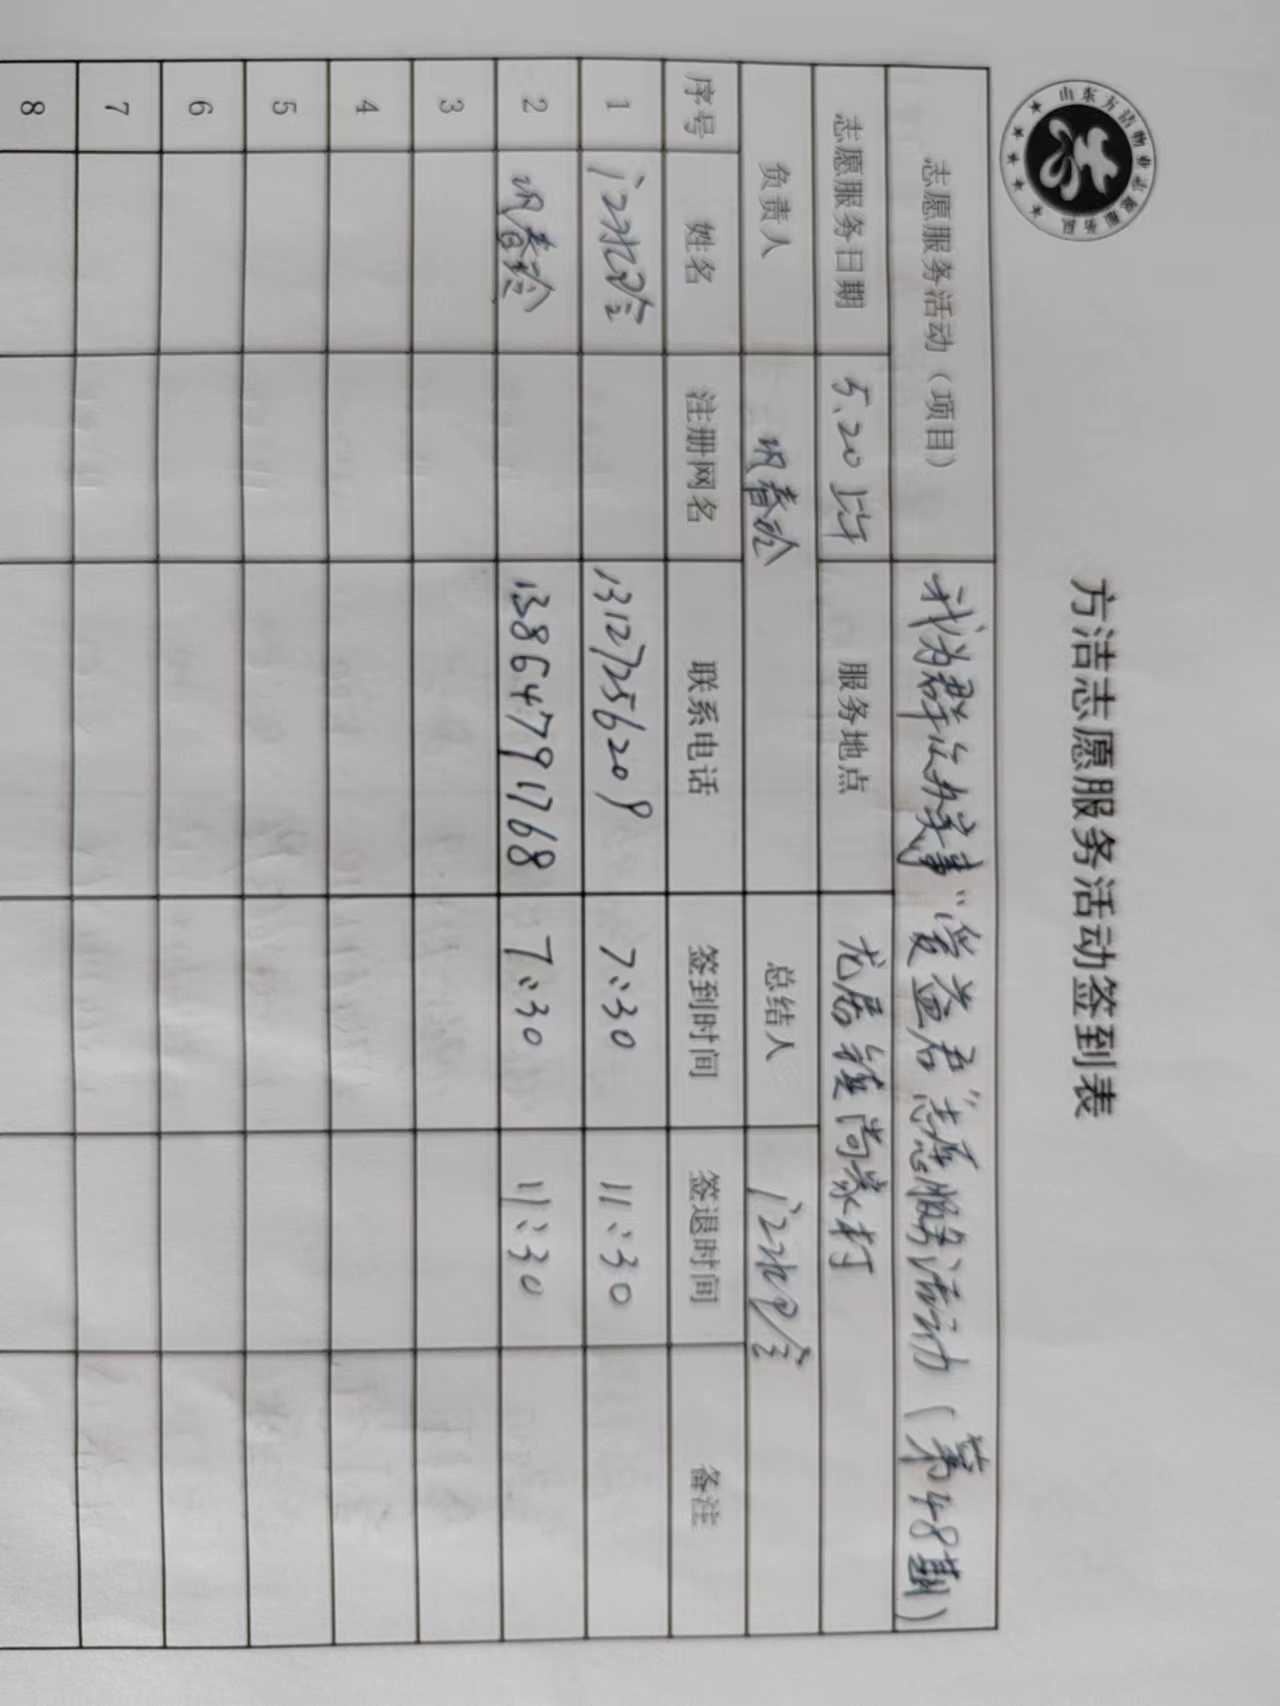 山东方洁物业志愿服务队
方洁志愿服务活动签到表
志愿服务活动（项目） 我为群众办实事“爱益君”志愿服务活动（第48期）
志愿服务日期 5.20 上午 服务地点 龙居镇尚家村
负责人 巩春玲 总结人
序号 姓名 注册网名 联系电话 签到时间 签退时间 备注
1 13127256209 7:30 11:30
2 巩春玲 13864791768 7:30 11:30
3
4
5
6
7
8